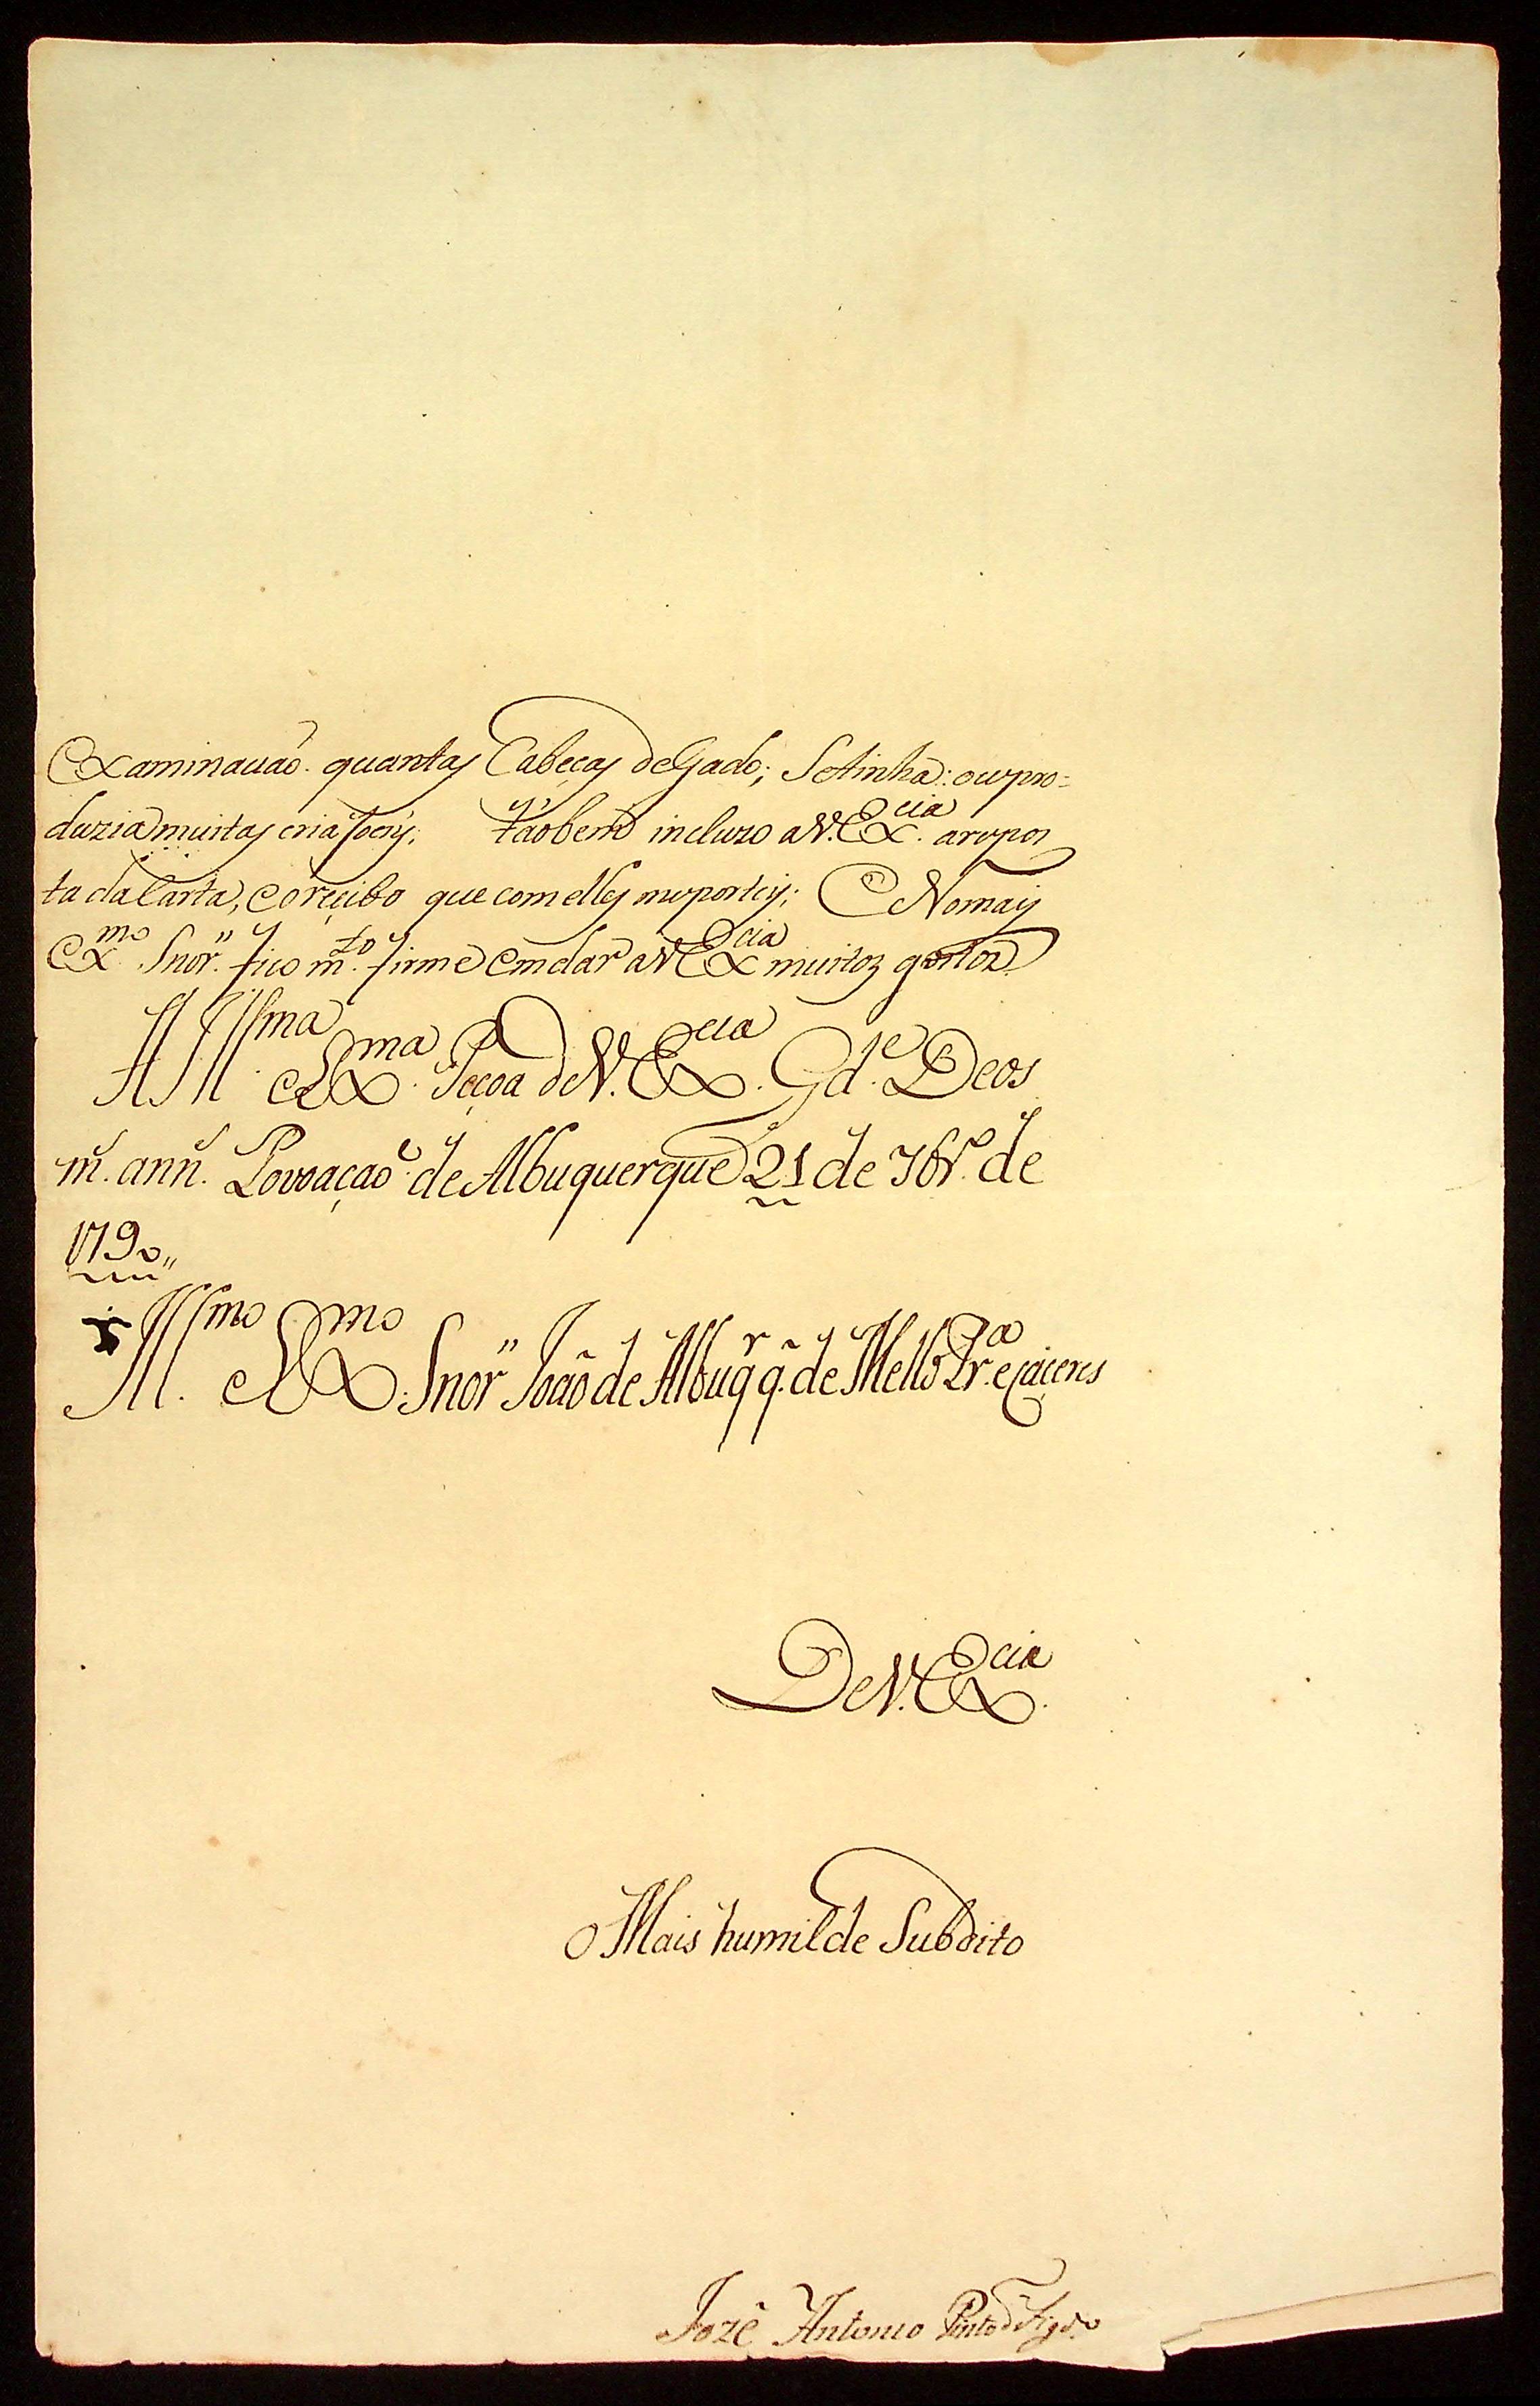 Examinauão. quantas Cabeças deGado; Setinha: oupro=
duzia muitas criaçoens; tãobem incluzo aV.Ex.cia arespos
ta daCarta, eoreçibo que comelles meportei; E Nomais
Ex.mo Snor." fico m.to firme emdar aV Ex.cia muitos gostos
A Ill.ma e Ex.ma Peçoa deV. Ex.cia G.de Deos
m.s ann.s Povoação de Albuquerque 21 de 7br.o de
1790,,
Ill.mo e Ex.mo Snor" João de Albuqr.q̃. de Mello Pr.a eCaçeres
DeV.Ex.cia
O Mais humilde Subdito
Jozê Antonio Pinto d Figd.o